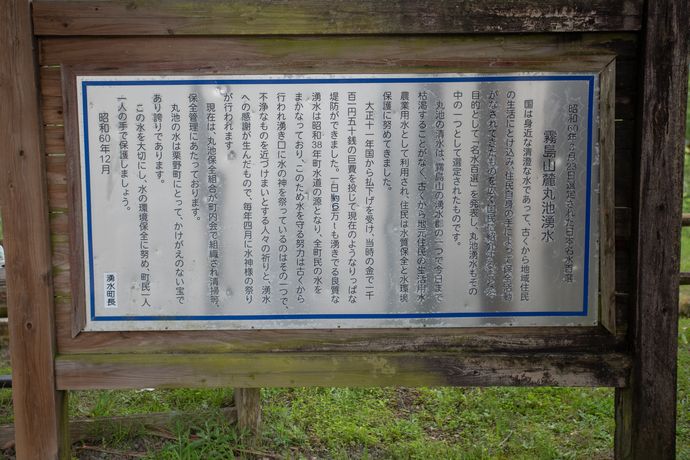 昭和60年7月23日選定された日本名水百選
霧島山麓丸池湧水
国は身近な清澄な水であって、古くから地域住民
の生活にとけ込み、住民自身の手によって保全活動
がなされてきたものを
目的として「名水百選」を発表し、丸池湧水もその
中の一つとして選定されたものです。
丸池の清水は、霧島山の湧水群の一つで今日まで
枯渇することがなく、古くから地元住民の生活用水
農業用水として利用され、住民は水質保全と水環境
保護に努めてきました。
大正十一年国から払下げを受け、当時の金で一千
百一円五十銭の巨費を投じて現在のようなりっぱな
堤防ができました。一日約6万トンも湧きでる良質な
湧水は昭和38年町水道の源となり、全町民の水を
まかなっており、このため水を守る努力は古くから
行われ湧き口に水の神を祭っているのはその一つで、
不浄なものを近づけまいとする人々の祈りと、湧水
への感謝が生んだもので、毎年四月に水神様の祭り
が行われます。
現在は、丸池保全組合が町内会で組織され清掃等、
保全管理にあたっております。
丸池の水は栗野町にとって、かけがえのない宝で
あり誇りであります。
この水を大切にし、水の環境保全に努め、町民一人
一人の手で保護しましょう。
昭和60年12月
湧水町長